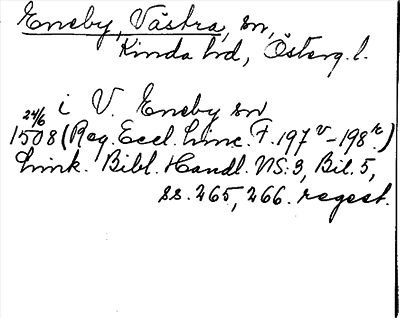 Eneby, Västra, sn,
Kinda hd, Österg. l.
i V. Eneby sn
24/6
1508 (Reg. Eccl. Linc. F. 197 v - 198 r.)
Link. Bibl. Handl. NS: 3, Bil. 5,
ss. 265, 266. regest.